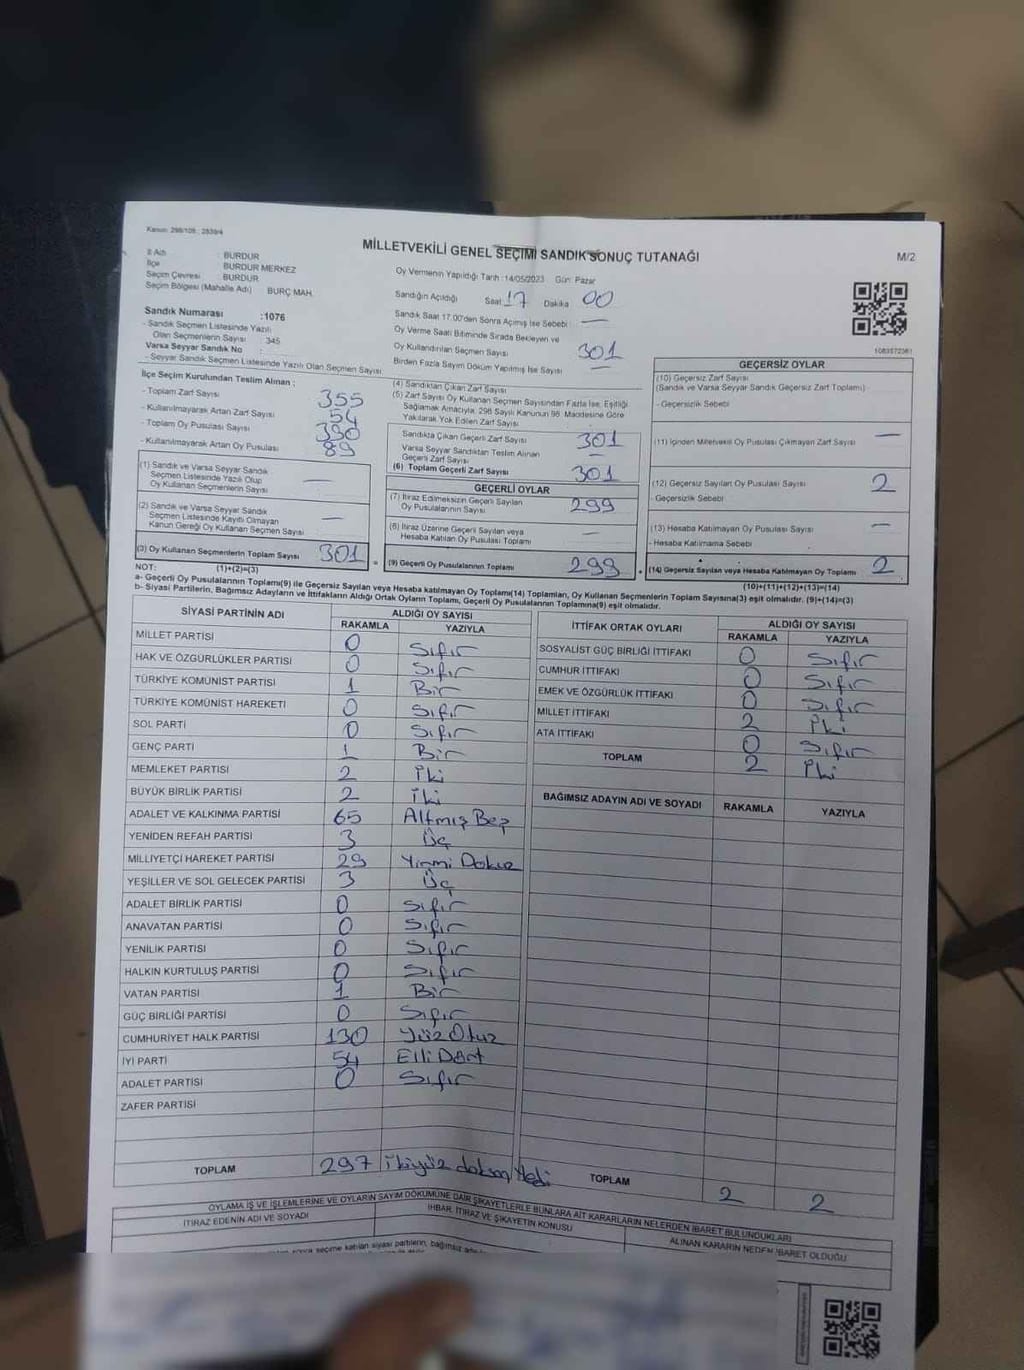 Kanun: 298/105 ; 2839/4
MİLLETVEKİLİ GENEL SEÇİMİ SANDIK SONUÇ TUTANAĞI
M/2
İl Adı : BURDUR
İlçe : BURDUR MERKEZ
Seçim Çevresi : BURDUR
Seçim Bölgesi (Mahalle Adı) BURÇ MAH.
Oy Vermenin Yapıldığı Tarih :14/05/2023 Gün: Pazar
Sandığın Açıldığı Saat 17 Dakika 00
Sandık Saat 17.00'den Sonra Açılmış İse Sebebi : —
Oy Verme Saati Bitiminde Sırada Bekleyen ve
Oy Kullandırılan Seçmen Sayısı 301
Birden Fazla Sayım Döküm Yapılmış İse Sayısı : —
Sandık Numarası :1076
- Sandık Seçmen Listesinde Yazılı
Olan Seçmenlerin Sayısı : 345
Varsa Seyyar Sandık No :
- Seyyar Sandık Seçmen Listesinde Yazılı Olan Seçmen Sayısı
1083572361
İlçe Seçim Kurulundan Teslim Alınan :
- Toplam Zarf Sayısı 355
- Kullanılmayarak Artan Zarf Sayısı 54
- Toplam Oy Pusulası Sayısı 390
- Kullanılmayarak Artan Oy Pusulası 89
(1) Sandık ve Varsa Seyyar Sandık
Seçmen Listesinde Yazılı Olup
Oy Kullanan Seçmenlerin Sayısı —
(2) Sandık ve Varsa Seyyar Sandık
Seçmen Listesinde Kayıtlı Olmayan
Kanun Gereği Oy Kullanan Seçmen Sayısı —
(3) Oy Kullanan Seçmenlerin Toplam Sayısı 301 =
(4) Sandıktan Çıkan Zarf Sayısı
(5) Zarf Sayısı Oy Kullanan Seçmen Sayısından Fazla İse, Eşitliği
Sağlamak Amacıyla, 298 Sayılı Kanunun 98. Maddesine Göre
Yakılarak Yok Edilen Zarf Sayısı
Sandıkta Çıkan Geçerli Zarf Sayısı 301
Varsa Seyyar Sandıktan Teslim Alınan
Geçerli Zarf Sayısı —
(6) Toplam Geçerli Zarf Sayısı 301
GEÇERLİ OYLAR
(7) İtiraz Edilmeksizin Geçerli Sayılan
Oy Pusulalarının Sayısı 299
(8) İtiraz Üzerine Geçerli Sayılan veya
Hesaba Katılan Oy Pusulası Toplamı —
(9) Geçerli Oy Pusulalarının Toplamı 299 +
GEÇERSİZ OYLAR
(10) Geçersiz Zarf Sayısı
(Sandık ve Varsa Seyyar Sandık Geçersiz Zarf Toplamı)
- Geçersizlik Sebebi :
(11) İçinden Milletvekili Oy Pusulası Çıkmayan Zarf Sayısı —
(12) Geçersiz Sayılan Oy Pusulası Sayısı 2
- Geçersizlik Sebebi :
(13) Hesaba Katılmayan Oy Pusulası Sayısı —
- Hesaba Katılmama Sebebi
(14) Geçersiz Sayılan veya Hesaba Katılmayan Oy Toplamı 2
(10)+(11)+(12)+(13)=(14)
NOT: (1)+(2)=(3)
a- Geçerli Oy Pusulalarının Toplamı(9) ile Geçersiz Sayılan veya Hesaba katılmayan Oy Toplamı(14) Toplamları, Oy Kullanan Seçmenlerin Toplam Sayısına(3) eşit olmalıdır. (9)+(14)=(3)
b- Siyasi Partilerin, Bağımsız Adayların ve İttifakların Aldığı Ortak Oyların Toplamı, Geçerli Oy Pusulalarının Toplamına(9) eşit olmalıdır.
SİYASİ PARTİNİN ADI ALDIĞI OY SAYISI
RAKAMLA YAZIYLA
MİLLET PARTİSİ 0 Sıfır
HAK VE ÖZGÜRLÜKLER PARTİSİ 0 Sıfır
TÜRKİYE KOMÜNİST PARTİSİ 1 Bir
TÜRKİYE KOMÜNİST HAREKETİ 0 Sıfır
SOL PARTİ 0 Sıfır
GENÇ PARTİ 1 Bir
MEMLEKET PARTİSİ 2 İki
BÜYÜK BİRLİK PARTİSİ 2 İki
ADALET VE KALKINMA PARTİSİ 65 Altmış Beş
YENİDEN REFAH PARTİSİ 3 Üç
MİLLİYETÇİ HAREKET PARTİSİ 29 Yirmi Dokuz
YEŞİLLER VE SOL GELECEK PARTİSİ 3 Üç
ADALET BİRLİK PARTİSİ 0 Sıfır
ANAVATAN PARTİSİ 0 Sıfır
YENİLİK PARTİSİ 0 Sıfır
HALKIN KURTULUŞ PARTİSİ 0 Sıfır
VATAN PARTİSİ 1 Bir
GÜÇ BİRLİĞİ PARTİSİ 0 Sıfır
CUMHURİYET HALK PARTİSİ 130 Yüz Otuz
İYİ PARTİ 54 Elli Dört
ADALET PARTİSİ 0 Sıfır
ZAFER PARTİSİ
TOPLAM 297 İkiyüz doksan Yedi
İTTİFAK ORTAK OYLARI ALDIĞI OY SAYISI
RAKAMLA YAZIYLA
SOSYALİST GÜÇ BİRLİĞİ İTTİFAKI 0 Sıfır
CUMHUR İTTİFAKI 0 Sıfır
EMEK VE ÖZGÜRLÜK İTTİFAKI 0 Sıfır
MİLLET İTTİFAKI 2 İki
ATA İTTİFAKI 0 Sıfır
TOPLAM 2 İki
BAĞIMSIZ ADAYIN ADI VE SOYADI RAKAMLA YAZIYLA
TOPLAM 2 2
OYLAMA İŞ VE İŞLEMLERİNE VE OYLARIN SAYIM DÖKÜMÜNE DAİR ŞİKAYETLERLE BUNLARA AİT KARARLARIN NELERDEN İBARET BULUNDUKLARI
İTİRAZ EDENİN ADI VE SOYADI
İHBAR, İTİRAZ VE ŞİKAYETİN KONUSU
ALINAN KARARIN NEDEN İBARET OLDUĞU
seçime katılan siyasi partilerin, bağımsız